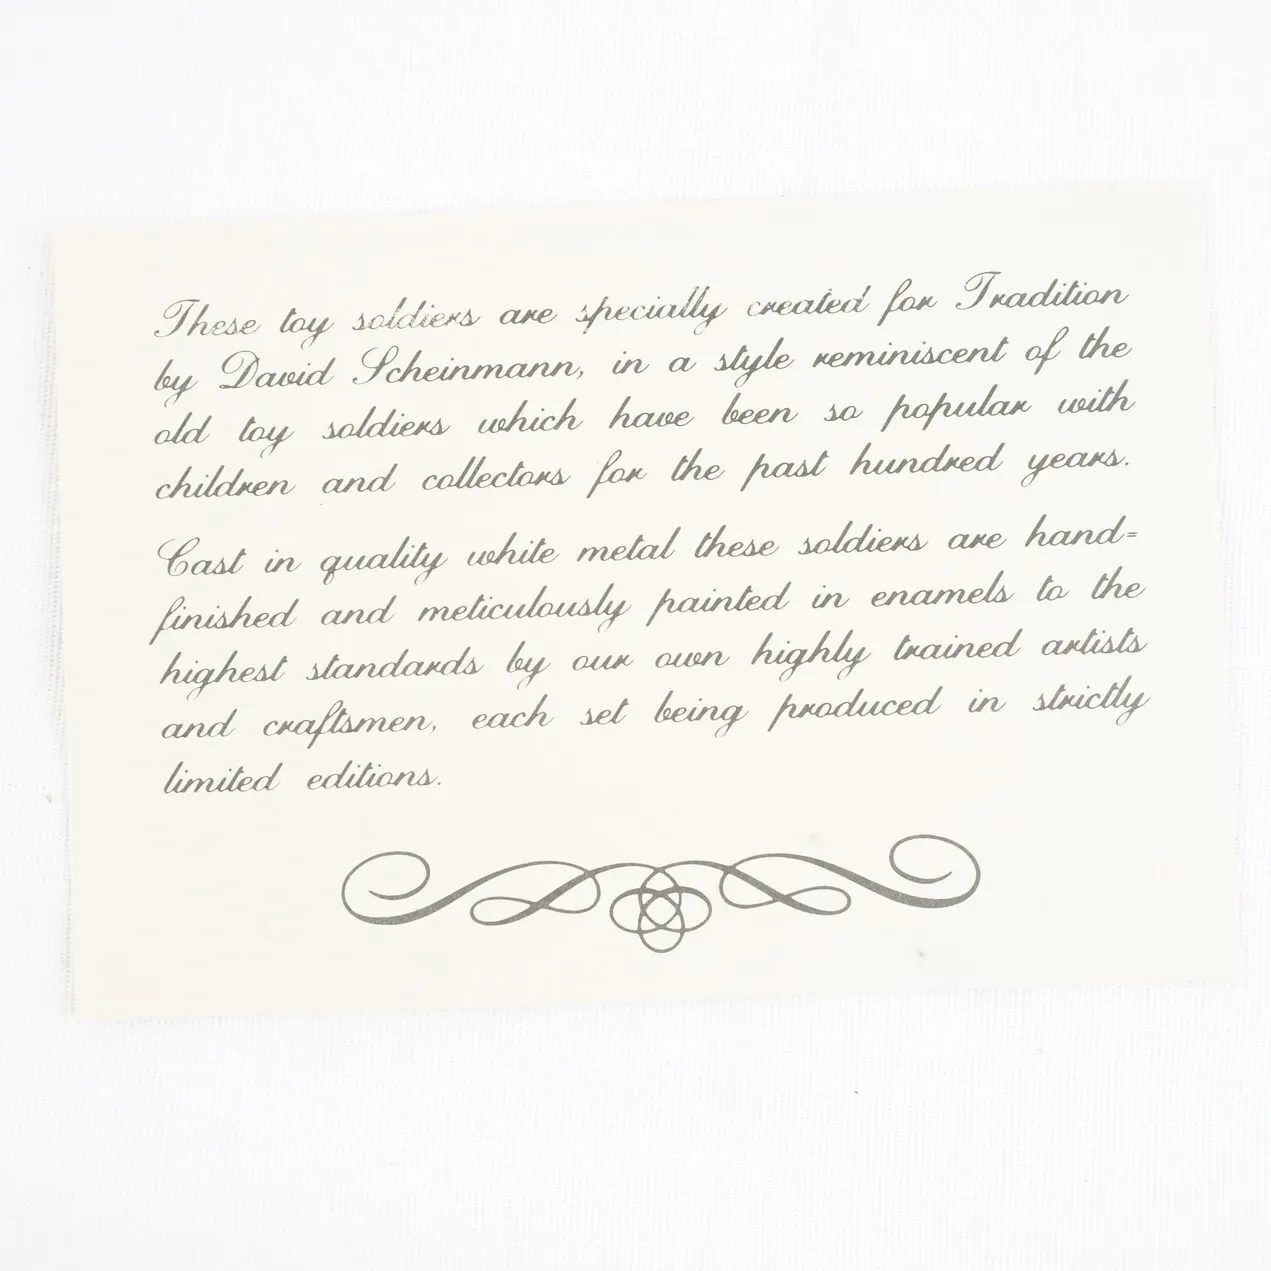 These toy soldiers are specially created for Tradition
by David Scheinmann, in a style reminiscent of the
old toy soldiers which have been so popular with
children and collectors for the past hundred years.
Cast in quality white metal these soldiers are hand=
finished and meticulously painted in enamels to the
highest standards by our own highly trained artists
and craftsmen, each set being produced in strictly
limited editions.